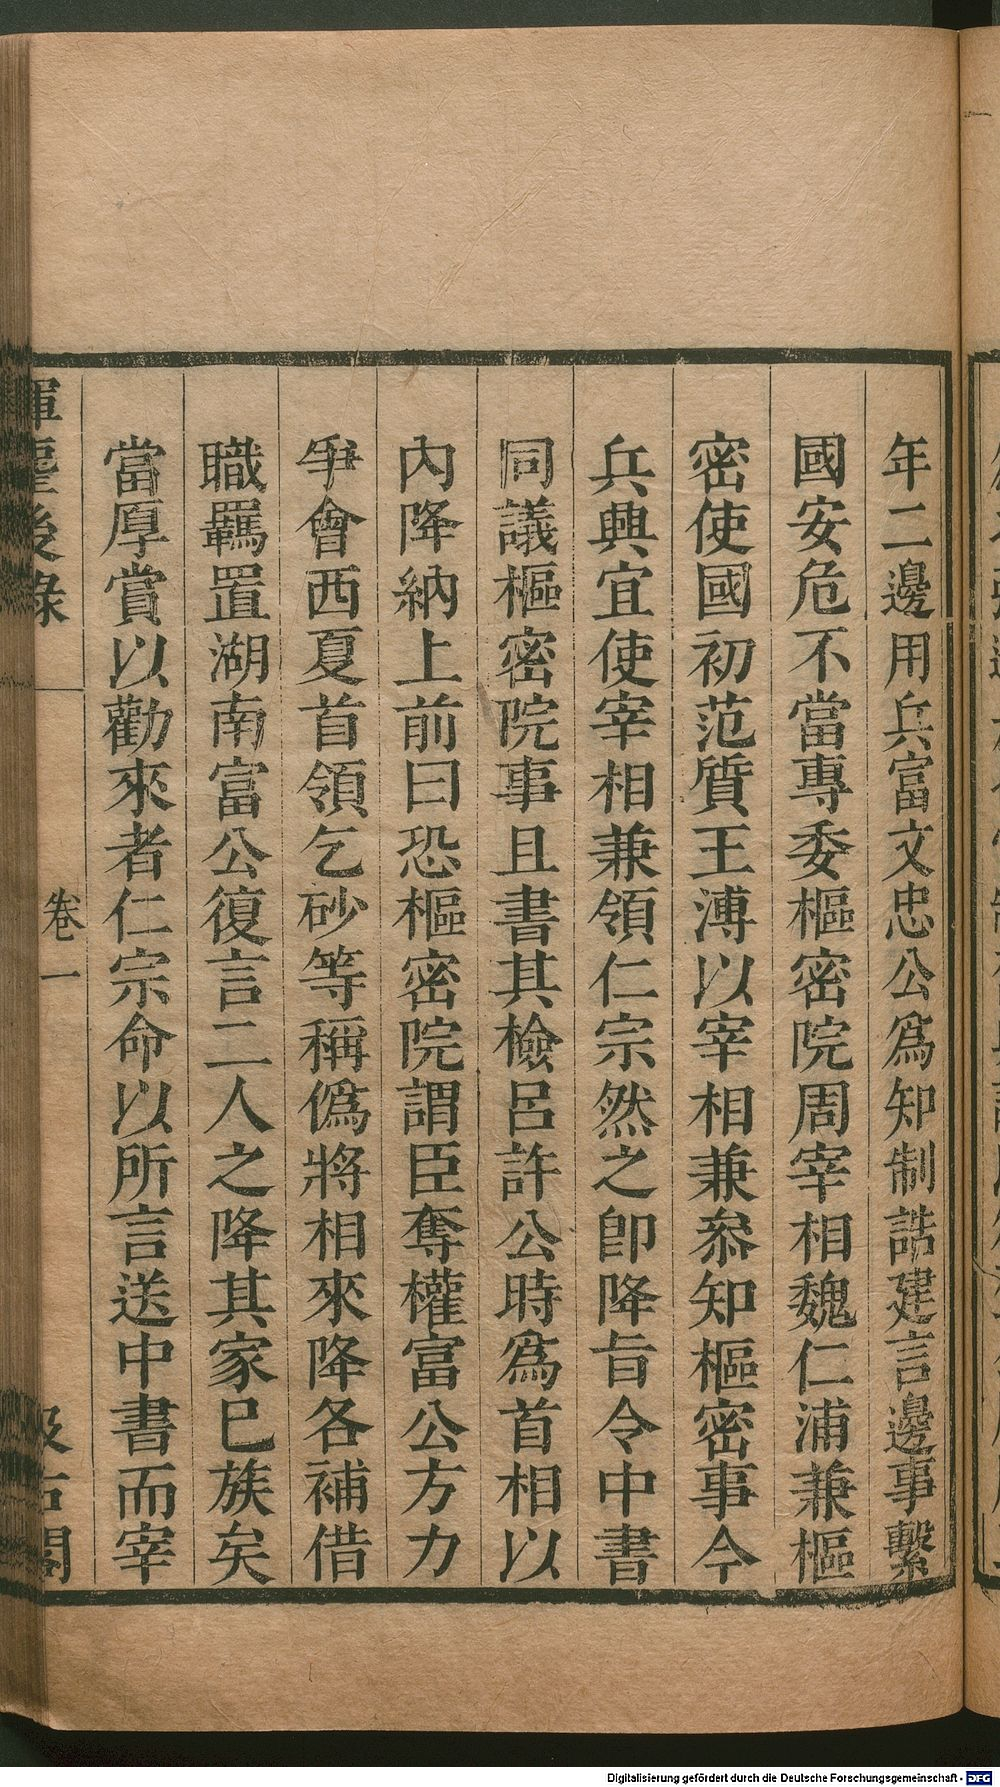 年二邊用兵富文忠公爲知制誥建言邊事繫
國安危不當專委樞密院周宰相魏仁浦兼樞
密使國初范質王溥以宰相兼叅知樞密事今
兵興宜使宰相兼領仁宗然之卽降旨令中書
同議樞密院事且書其檢呂許公時爲首相以
內降納上前曰恐樞密院謂臣奪權富公方力
爭會西夏首領乞砂等稱僞將相來降各補借
職羈置湖南富公復言二人之降其家已族矣
當厚賞以勸來者仁宗命以所言送中書而宰
揮麈後錄
卷一
汲古閣
Digitalisierung gefördert durch die Deutsche Forschungsgemeinschaft - DFG